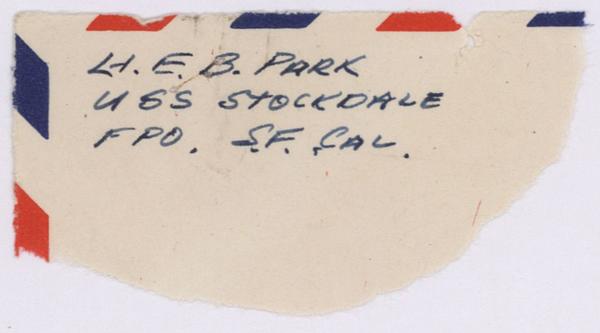 Lt. E. B. PARK
USS STOCKDALE
FPO. S.F. CAL.